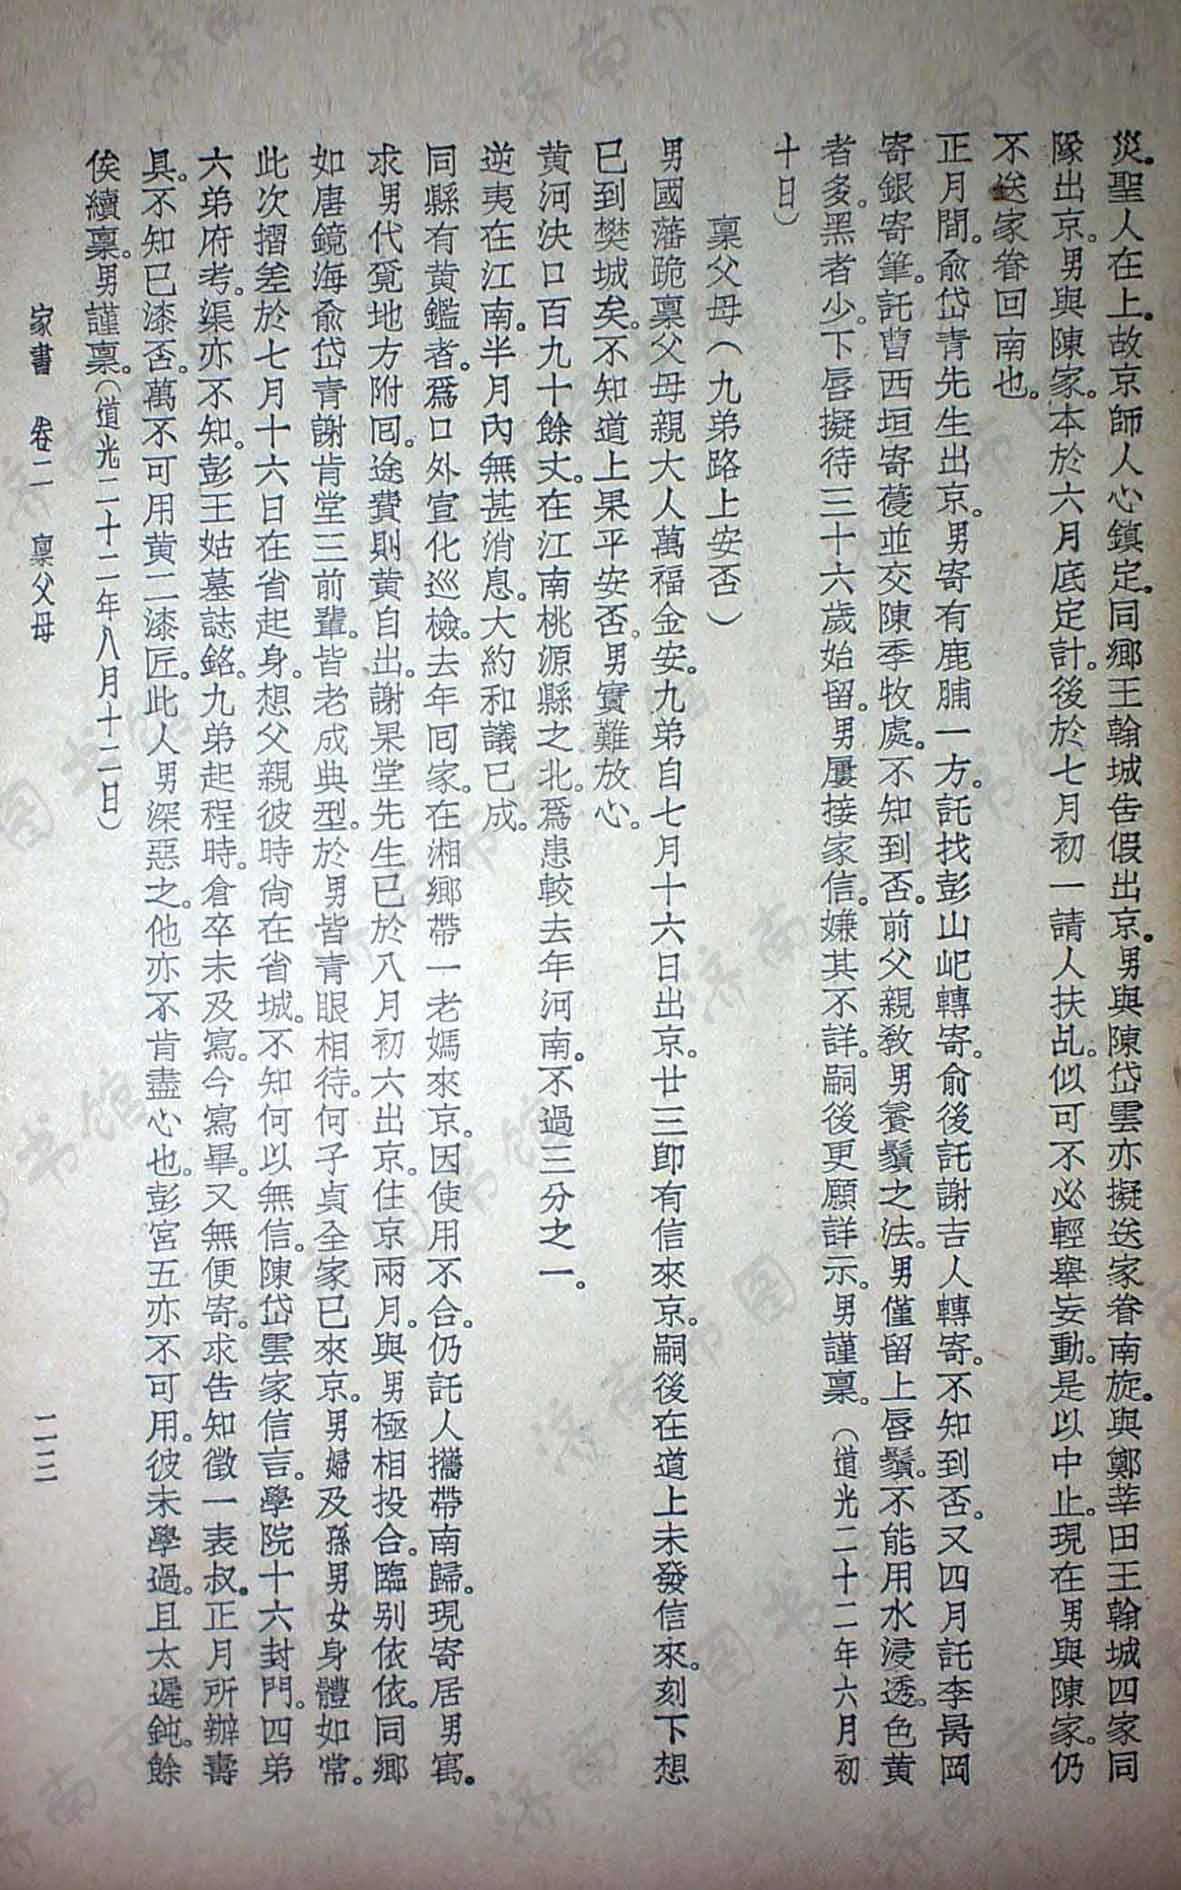 災。聖人在上。故京師人心鎮定。同鄉王翰城告假出京。男與陳岱雲亦擬送家眷南旋。與鄭莘田王翰城四家同
隊出京。男與陳家。本於六月底定計。後於七月初一請人扶乩。似可不必輕舉妄動。是以中止。現在男與陳家。仍
不送家眷回南也。
正月間。俞岱青先生出京。男寄有鹿脯一方。託找彭山屺轉寄。俞後託謝吉人轉寄。不知到否。又四月託李昺岡
寄銀寄筆。託曹西垣寄葠並交陳季牧處。不知到否。前父親教男養鬚之法。男僅留上唇鬚。不能用水浸透。色黃
者多。黑者少。下唇擬待三十六歲始留。男屢接家信。嫌其不詳。嗣後更願詳示。男謹稟。(道光二十二年六月初
十日)
稟父母(九弟路上安否)
男國藩跪稟父母親大人萬福金安。九弟自七月十六日出京。廿三卽有信來京。嗣後在道上未發信來。刻下想
已到樊城矣。不知道上果平安否。男實難放心。
黃河決口百九十餘丈。在江南桃源縣之北。爲患較去年河南。不過三分之一。
逆夷在江南。半月內無甚消息。大約和議已成。
同縣有黃鑑者。爲口外宣化巡檢。去年回家。在湘鄉帶一老媽來京。因使用不合。仍託人攜帶南歸。現寄居男寓。
求男代覓地方附回。途費則黃自出。謝果堂先生已於八月初六出京。住京兩月。與男極相投合。臨別依依。同鄉
如唐鏡海俞岱青謝肯堂三前輩。皆老成典型。於男皆青眼相待。何子貞全家已來京。男婦及孫男女身體如常。
此次摺差於七月十六日在省起身。想父親彼時尙在省城。不知何以無信。陳岱雲家信言。學院十六封門。四弟
六弟府考。渠亦不知。彭王姑墓誌銘。九弟起程時。倉卒未及寫。今寫畢。又無便寄。求告知徵一表叔。正月所辦壽
具。不知已漆否。萬不可用黃二漆匠。此人男深惡之。他亦不肯盡心也。彭宮五亦不可用。彼未學過。且太遲鈍。餘
俟續稟。男謹稟。(道光二十二年八月十二日)
家書 卷二 稟父母 二三